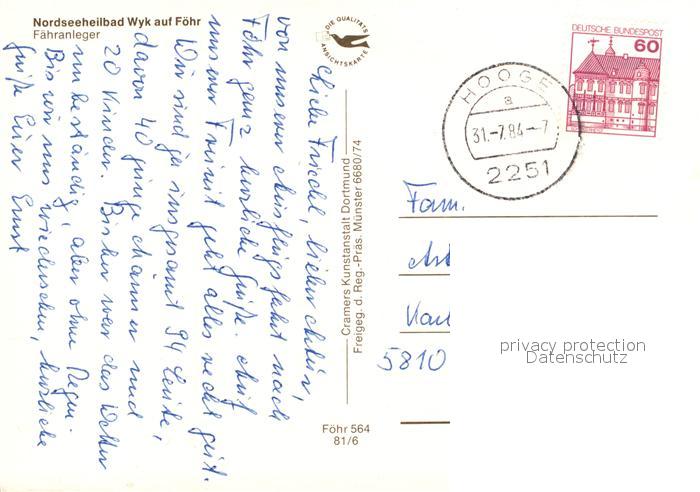 Nordseeheilbad Wyk auf Föhr
Fähranleger
DIE QUALITÄTS
ANSICHTSKARTE
Liebe Friedel, lieber
von unserer Ausflugsfahrt nach
Föhr ganz herzliche Grüße. Auf
unserer Freizeit geht alles recht gut.
Wir sind ja insgesamt 94 Leute,
davon 40 junge Männer und
20 Kinder. Bisher war das Wetter
unbeständig, aber ohne Regen.
Bis wir uns wiedersehen, herzliche
Grüße Euer Ernst
Cramers Kunstanstalt Dortmund
Freigeg. d. Reg.-Präs. Münster 6680/74
Föhr 564
81/6
DEUTSCHE BUNDESPOST
60
HOOGE
a
31.-7.84-7
2251
Fam.
5810
privacy protection
Datenschutz